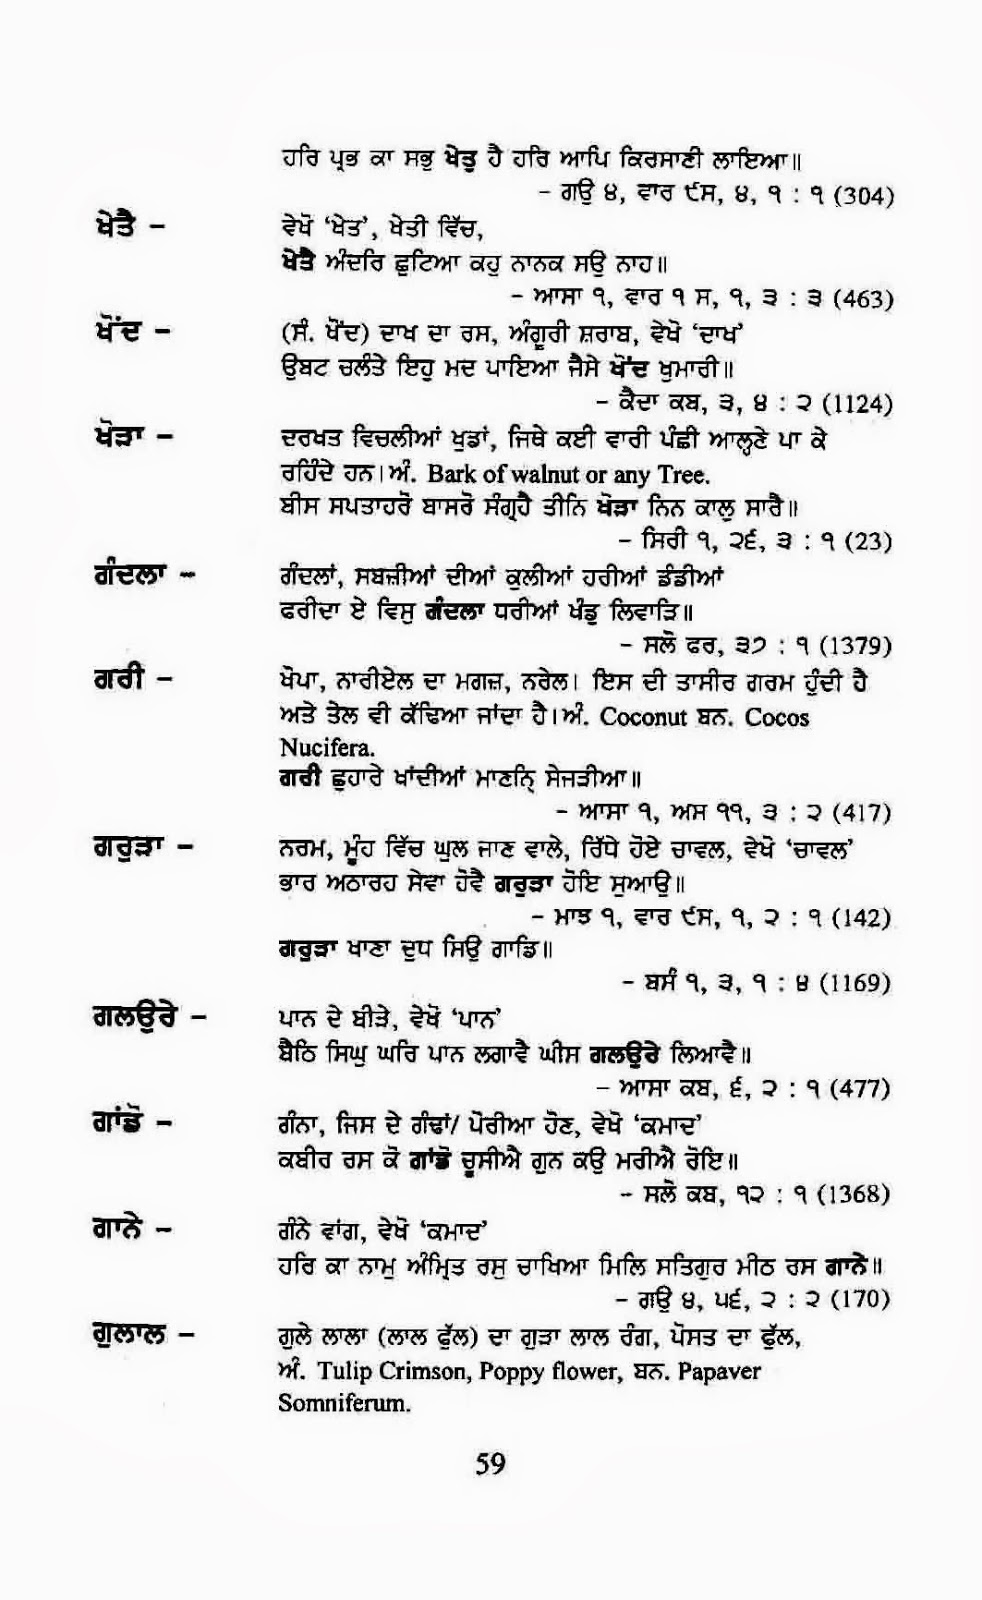 ਹਰਿ ਪ੍ਰਭ ਕਾ ਸਭੁ ਖੇਤੁ ਹੈ ਹਰਿ ਆਪਿ ਕਿਰਸਾਣੀ ਲਾਇਆ॥
– ਗਉ ੪, ਵਾਰ ੯ਸ, ੪, ੧ : ੧ (304)
ਖੇਤੈ – ਵੇਖੋ ‘ਖੇਤ’, ਖੇਤੀ ਵਿੱਚ,
ਖੇਤੈ ਅੰਦਰਿ ਛੁਟਿਆ ਕਹੁ ਨਾਨਕ ਸਉ ਨਾਹ॥
– ਆਸਾ ੧, ਵਾਰ ੧ ਸ, ੧, ੩ : ੩ (463)
ਖੋਂਦ – (ਸੰ. ਖੋਂਦ) ਦਾਖ ਦਾ ਰਸ, ਅੰਗੂਰੀ ਸ਼ਰਾਬ, ਵੇਖੋ ‘ਦਾਖ’
ਉਬਟ ਚਲੰਤੇ ਇਹੁ ਮਦ ਪਾਇਆ ਜੈਸੇ ਖੋਂਦ ਖੁਮਾਰੀ॥
– ਕੈਦਾ ਕਬ, ੩, ੪ : ੨ (1124)
ਖੋੜਾ – ਦਰਖਤ ਵਿਚਲੀਆਂ ਖੁਡਾਂ, ਜਿਥੇ ਕਈ ਵਾਰੀ ਪੰਛੀ ਆਲ੍ਹਣੇ ਪਾ ਕੇ
ਰਹਿੰਦੇ ਹਨ। ਅੰ. Bark of walnut or any Tree.
ਬੀਸ ਸਪਤਾਹਰੋ ਬਾਸਰੋ ਸੰਗ੍ਰਹੈ ਤੀਨਿ ਖੋੜਾ ਨਿਨ ਕਾਲੁ ਸਾਰੈ॥
– ਸਿਰੀ ੧, ੨੬, ੩ : ੧ (23)
ਗੰਦਲਾ – ਗੰਦਲਾਂ, ਸਬਜ਼ੀਆਂ ਦੀਆਂ ਕੂਲੀਆਂ ਹਰੀਆਂ ਡੰਡੀਆਂ
ਫਰੀਦਾ ਏ ਵਿਸੁ ਗੰਦਲਾ ਧਰੀਆਂ ਖੰਡੁ ਲਿਵਾੜਿ॥
– ਸਲੋ ਫਰ, ੩੭ : ੧ (1379)
ਗਰੀ – ਖੋਪਾ, ਨਾਰੀਏਲ ਦਾ ਮਗਜ਼, ਨਰੇਲ। ਇਸ ਦੀ ਤਾਸੀਰ ਗਰਮ ਹੁੰਦੀ ਹੈ
ਅਤੇ ਤੇਲ ਵੀ ਕੱਢਿਆ ਜਾਂਦਾ ਹੈ। ਅੰ. Coconut ਬਨ. Cocos
Nucifera.
ਗਰੀ ਛੁਹਾਰੇ ਖਾਂਦੀਆਂ ਮਾਣਨ੍ਹਿ ਸੇਜੜੀਆ॥
– ਆਸਾ ੧, ਅਸ ੧੧, ੩ : ੨ (417)
ਗਰੁੜਾ – ਨਰਮ, ਮੂੰਹ ਵਿੱਚ ਘੁਲ ਜਾਣ ਵਾਲੇ, ਰਿੱਧੇ ਹੋਏ ਚਾਵਲ, ਵੇਖੋ ‘ਚਾਵਲ’
ਭਾਰ ਅਠਾਰਹ ਸੇਵਾ ਹੋਵੈ ਗਰੁੜਾ ਹੋਇ ਸੁਆਉ॥
– ਮਾਝ ੧, ਵਾਰ ੯ਸ, ੧, ੨ : ੧ (142)
ਗਰੁੜਾ ਖਾਣਾ ਦੁਧ ਸਿਉ ਗਾਡਿ॥
– ਬਸੰ ੧, ੩, ੧ : ੪ (1169)
ਗਲਉਰੇ – ਪਾਨ ਦੇ ਬੀੜੇ, ਵੇਖੋ ‘ਪਾਨ’
ਬੈਠਿ ਸਿਘੁ ਘਰਿ ਪਾਨ ਲਗਾਵੈ ਘੀਸ ਗਲਉਰੇ ਲਿਆਵੈ॥
– ਆਸਾ ਕਬ, ੬, ੨ : ੧ (477)
ਗਾਂਡੋ – ਗੰਨਾ, ਜਿਸ ਦੇ ਗੰਢਾਂ/ ਪੋਰੀਆ ਹੋਣ, ਵੇਖੋ ‘ਕਮਾਦ’
ਕਬੀਰ ਰਸ ਕੋ ਗਾਂਡੋ ਚੂਸੀਐ ਗੁਨ ਕਉ ਮਰੀਐ ਰੋਇ॥
– ਸਲੋ ਕਬ, ੧੨ : ੧ (1368)
ਗਾਨੇ – ਗੰਨੇ ਵਾਂਗ, ਵੇਖੋ ‘ਕਮਾਦ’
ਹਰਿ ਕਾ ਨਾਮੁ ਅੰਮ੍ਰਿਤ ਰਸੁ ਚਾਖਿਆ ਮਿਲਿ ਸਤਿਗੁਰ ਮੀਠ ਰਸ ਗਾਨੇ॥
– ਗਉ ੪, ੫੬, ੨ : ੨ (170)
ਗੁਲਾਲ – ਗੁਲੇ ਲਾਲਾ (ਲਾਲ ਫੁੱਲ) ਦਾ ਗੂੜਾ ਲਾਲ ਰੰਗ, ਪੋਸਤ ਦਾ ਫੁੱਲ,
ਅੰ. Tulip Crimson, Poppy flower, ਬਨ. Papaver
Somniferum.
59